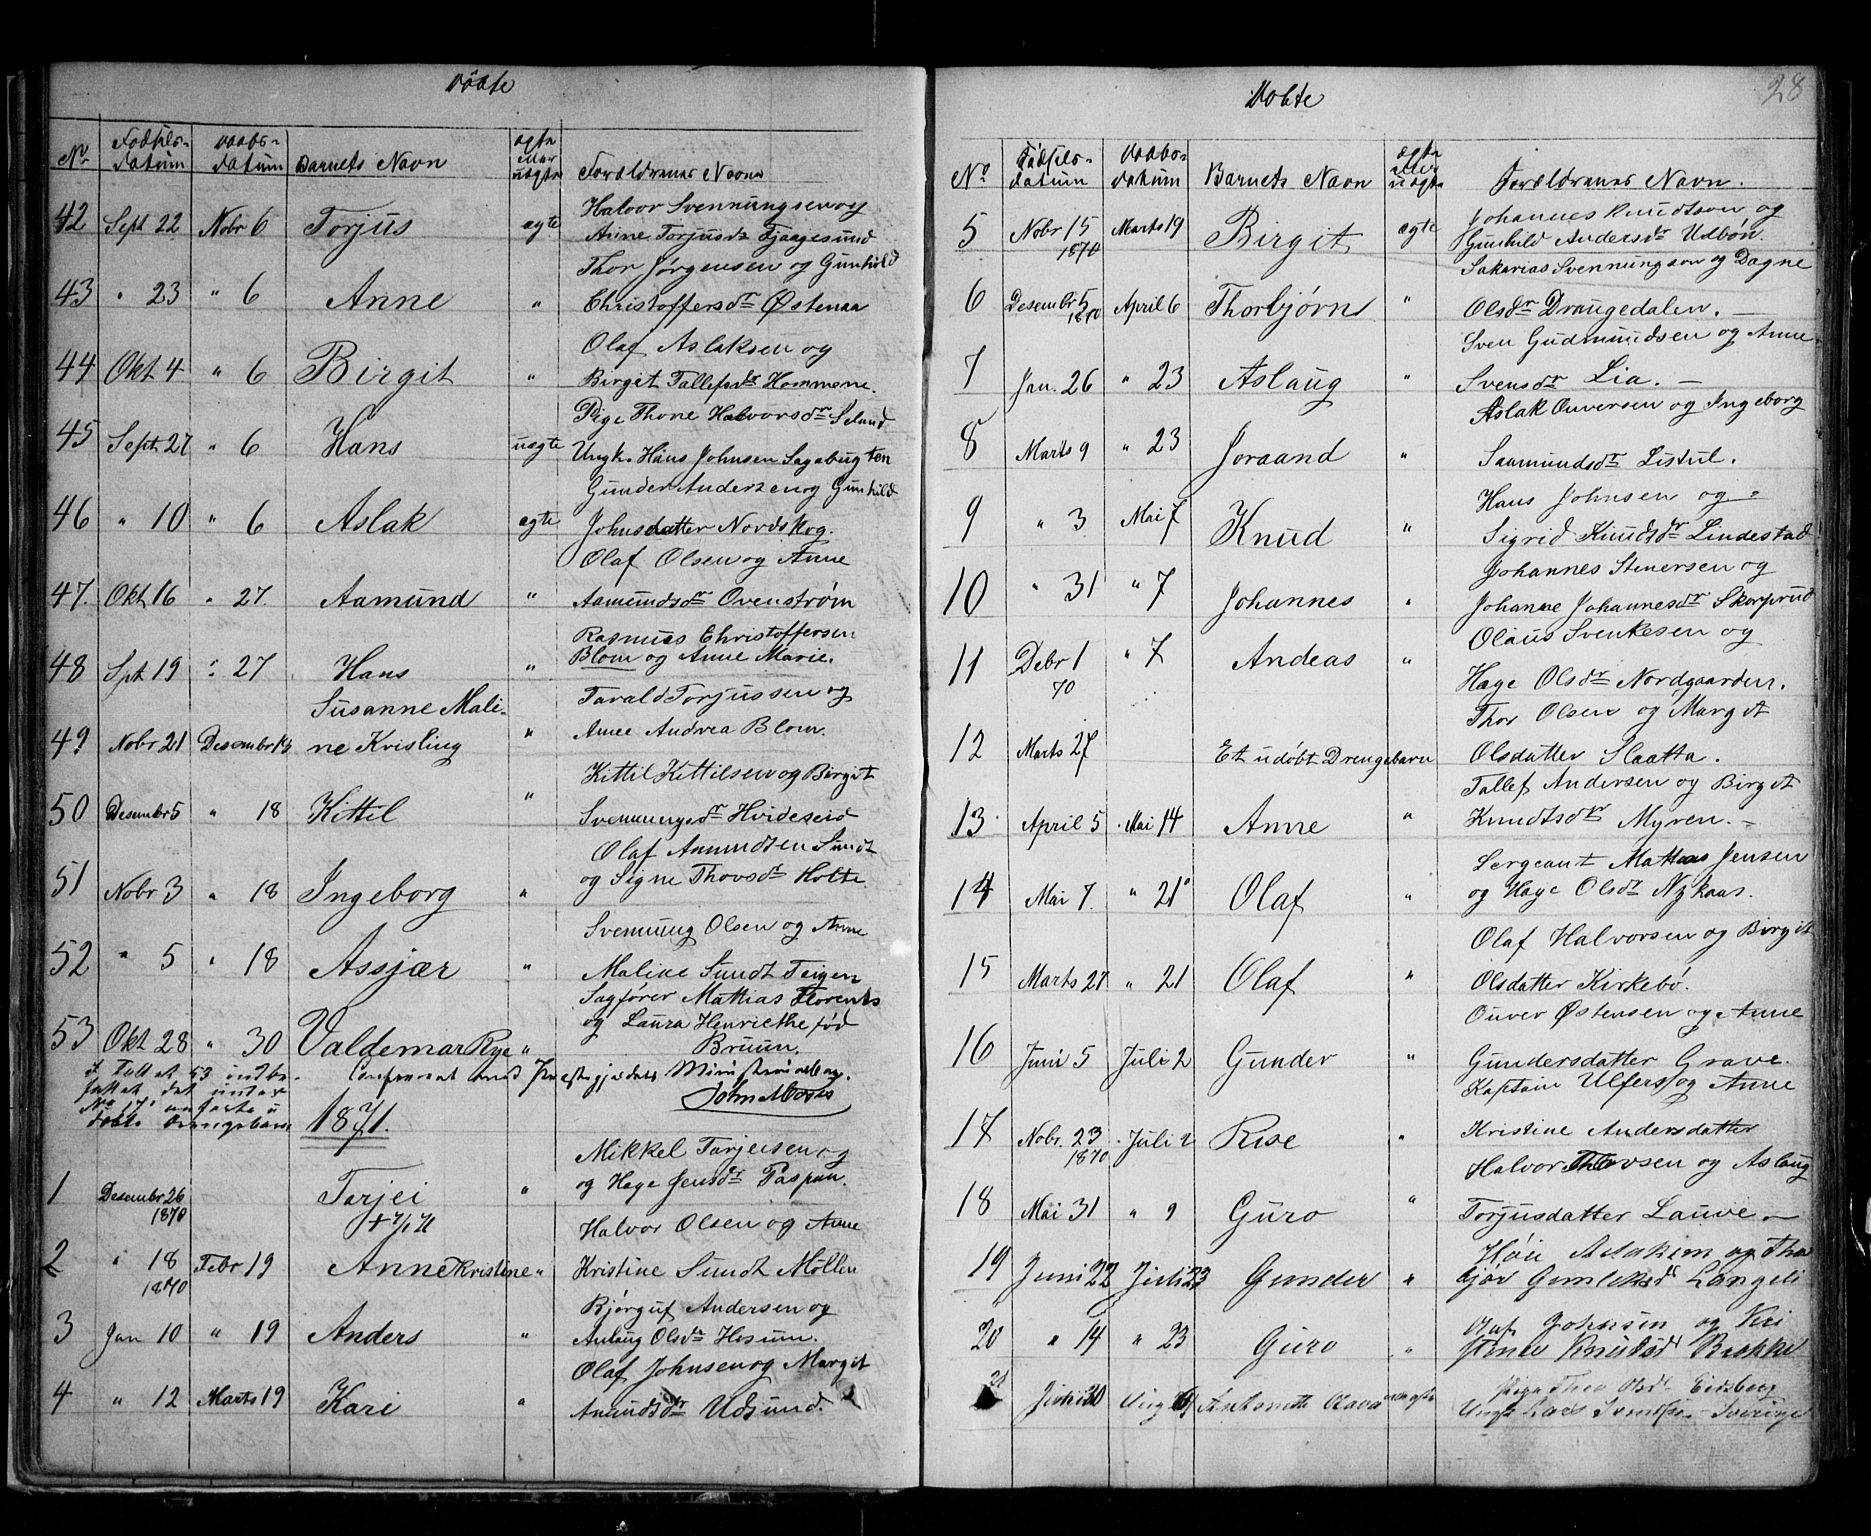 Døbte
No Fødsels- Daabs- Barnets Navn ægte Forældrenes Navne
datum datum eller
uægte
42 Sept 22 Nobr 6 Torjus ægte Halvor Svennungsen og
Anne Torjusdr Fjaagesund
43 " 23 " 6 Anne " Thor Jørgensen og Gunhild
Christoffersdr Østenaa
44 Okt 4 " 6 Birgit " Olaf Aslaksen og
Birgit Tallefsdr Hommene.
45 Sept 27 " 6 Hans uægte Pige Thone Halvorsdr Selund
Ungk. Hans Johnsen Sagabugten
46 " 10 " 6 Aslak ægte Gunder Andersen og Gunhild
Johnsdatter Nordskog.
47. Okt 16 " 27. Aamund " Olaf Olsen og Anne
Aamundsdr Ovenstrøm
48 Spt 19 " 27 Hans " Rasmus Christoffersen
Blom og Anne Marie.
49 Nobr 21 Desembr Susanne Mali- " Tarald Torjussen og
ne Kristing Anne Andrea Blom.
50 Desembr 5 " 18 Kittil " Kittil Kittilsen og Birgit
Svennungsdr Hvideseid
51 Nobr 3 " 18 Ingeborg " Olaf Anmundsen Sundt
og Signe Thovsdr Holte
52 " 5 " 18 Assjær " Svennung Olsen og Anne
Maline Sundt Teigen
53 Okt 28 " 30 Valdemar Rye " Sagfører Mattias Florents
og Laura Henriethe fød
Bruun.
I Tallet 53 indbe-
fattet det under
No 17 anførte u
døbte Drengebarn
Confereret med Præstegjeldets Ministerialbog.
John Moses
1871.
1 Desembr 26 Tarjei " Mikkel Tarjeisen og
1870 og Hage Jensdr Paspun.
2 " 18 Febr 19 Anne Kristine " Halvor Olsen og Anne
1870 Kristine Sundt Møllen
3 Jan 10 " 19 Anders " Bjørguf Andersen og
Aslaug Olsdr Hosum.
4 " 12 Marts 19 Kari " Olaf Johnsen og Margit
Amundsdr Udsund.
28
Døbte
No Fødsels- Daabs- Barnets Navn ægte Forældrenes Navn.
datum datum eller
uægte
5 Nobr 15 Marts 19 Birgit ægte Johannes Knudtson og
1870 Gunhild Andersdr Udbøn.
6 Desembr 5 April 6 Thorbjørn " Sakarias Svennungson og Dagne
1870 Olsdr Drangedalen.
7 Jan. 26 " 23 Aslaug " Sven Gudmundsen og Anne
Svensdr Lia.
8 Marts 9 " 23 Joraand " Aslak Ouversen og Ingeborg
Saamundsdr Listul.
9 " 3 Mai 7 Knud " Hans Johnsen og
Sigrid Knudsdr Lindestad
10 " 31 " 7 Johannes " Johannes Stenersen og
Johanne Johannesdr Skorprud
11 Debr 1 " 7 Andeas " Olaus Svenkesen og
70 Hage Olsdr Nordgaarden.
12 Marts 27 Et udøbt Drengebarn Thor Olsen og Margit
Olsdatter Slaatta.
13 April 5 Mai 14 Anne " Tallef Andersen og Birgit
Knudtsdr Myren.
14 Mai 7. " 21 Olaf " Sergeant Mathias Jensen
og Hage Olsdr Nykaas.
15 Marts 27 " 21 Olaf " Olaf Halvorsen og Birgit
Olsdatter Kirkebø.
16 Juni 5 Juli 2 Gunder " Ouver Østensen og Anne
Gundersdatter Grave.
17 Nobr. 23 Juli 2 Rise " Kaptain Ulfers og Anne
1870 Kristine Andersdatter
18 Mai 31 " 9 Guro " Halvor Thovsen og Aslaug
Torjusdatter Lauve.
19 Juni 22 Juli 23 Gunder " og Tho
gjør Gunleiksdr Langeli
20 " 14 " 23 Guro " Olaf Johnsen og Kri
stense Knudsd Brekke
21 Juli 20 Aug Antonette Olava uægte Pige Thea Olsd Eidsberg
Ungk Lars Svendsen Sverige